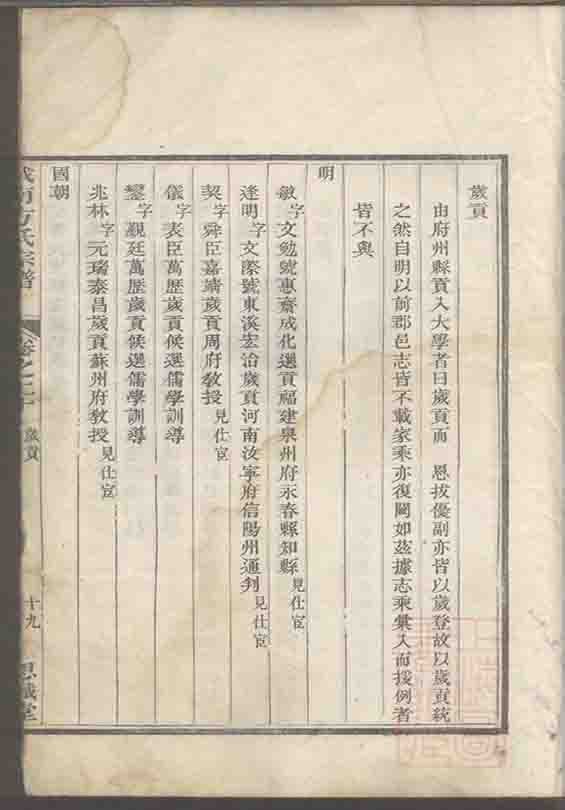 歲貢
由府州縣貢入大學者曰歲貢而　恩拔優副亦皆以歲登故以歲貢統
之然自明以前郡邑志皆不載家乘亦復闕如茲據志乘彙入而援例者
皆不與
明
敏字文勉號惠齋成化選貢福建泉州府永春縣知縣見仕宦
逢明字文際號東溪宏治歲貢河南汝寧府信陽州通判見仕宦
契字舜臣嘉靖歲貢周府教授見仕宦
儀字表臣萬歷歲貢候選儒學訓導
鑾字覲廷萬歷歲貢候選儒學訓導
兆林字元瑞泰昌歲貢蘇州府教授見仕宦
國朝
方氏宗譜 卷之二 歲貢 十九 思誠堂